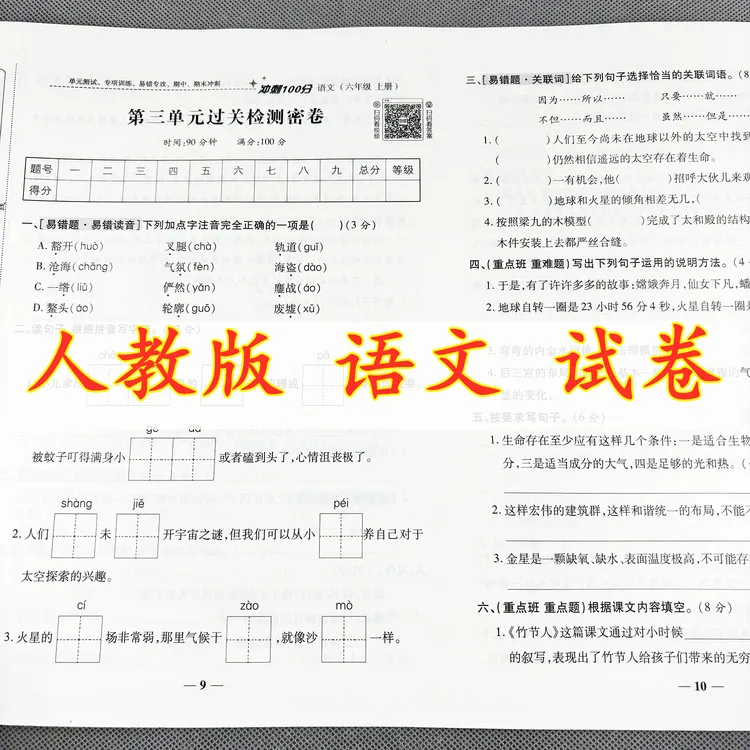 单元测试、专项训练、易错专攻、期中、期末冲刺
冲刺100分 语文(六年级 上册)
第三单元过关检测密卷
时间:90分钟 满分:100分
扫码看视频
扫码看答案
题号 一 二 三 四 五 六 七 八 九 总分 等级
得分
一、[易错题·易错读音]下列加点字注音完全正确的一项是( )(3分)
A. 豁开(huò) 叉腿(chà) 轨道(guǐ)
B. 沧海(chāng) 气氛(fèn) 海盗(dào)
C. 一绺(liǔ) 俨然(yǎn) 鏖战(áo)
D. 鳌头(áo) 轮廓(guō) 废墟(xū)
二、读句子,根据拼音写字词。
人教版 语文 试卷
被蚊子叮得满身小
或者磕到头了,心情沮丧极了。
shàng jiē péi
2. 人们 未 开宇宙之谜,但我们可以从小 养自己对于
太空探索的兴趣。
cí zào mò
3. 火星的 场非常弱,那里气候干 ,就像沙 一样。
— 9 —
三、[易错题·关联词]给下列句子选择恰当的关联词语。(8
因为……所以…… 只要……就……
不但……而且…… 虽然……但是…
1. ( )人们至今尚未在地球以外的太空中找到
( )仍然相信遥远的太空存在着生命。
2. ( )一有机会,他( )招呼大伙儿来观
3. ( )地球和火星的倾角相差无几,(
4. 按照梁九的木模型( )完成了太和殿的结构
木件安装上去都严丝合缝。
四、(重点班 重难题)写出下列句子运用的说明方法。(4
1. 于是,有了许许多多的故事:嫦娥奔月,仙女下凡,蟠
2. 地球自转一圈是23小时56分4秒,火星自转一圈
3. 弯弯的内金水
4. 后三宫的布局
的变化。
五、按要求写句子。(6分)
1. 生命存在至少应有这样几个条件:一是适合生物
分,三是适当成分的大气,四是足够的光和热。(
2. 这样宏伟的建筑群,这样和谐统一的布局,不能不
3. 金星是一颗缺氧、缺水、表面温度极高,不可能存
六、(重点班 重点题)根据课文内容填空。(8分)
1.《竹节人》这篇课文通过对小时候
的叙写,表现出了竹节人给孩子们带来的无穷
— 10 —